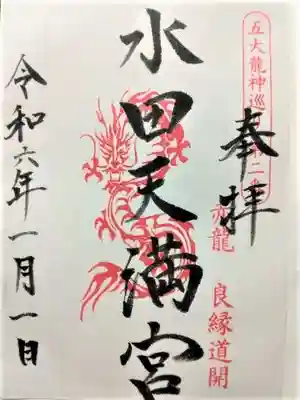 五大龍神巡
第二
奉拝
赤龍
良縁道開
水田天満宮
令和六年一月一日